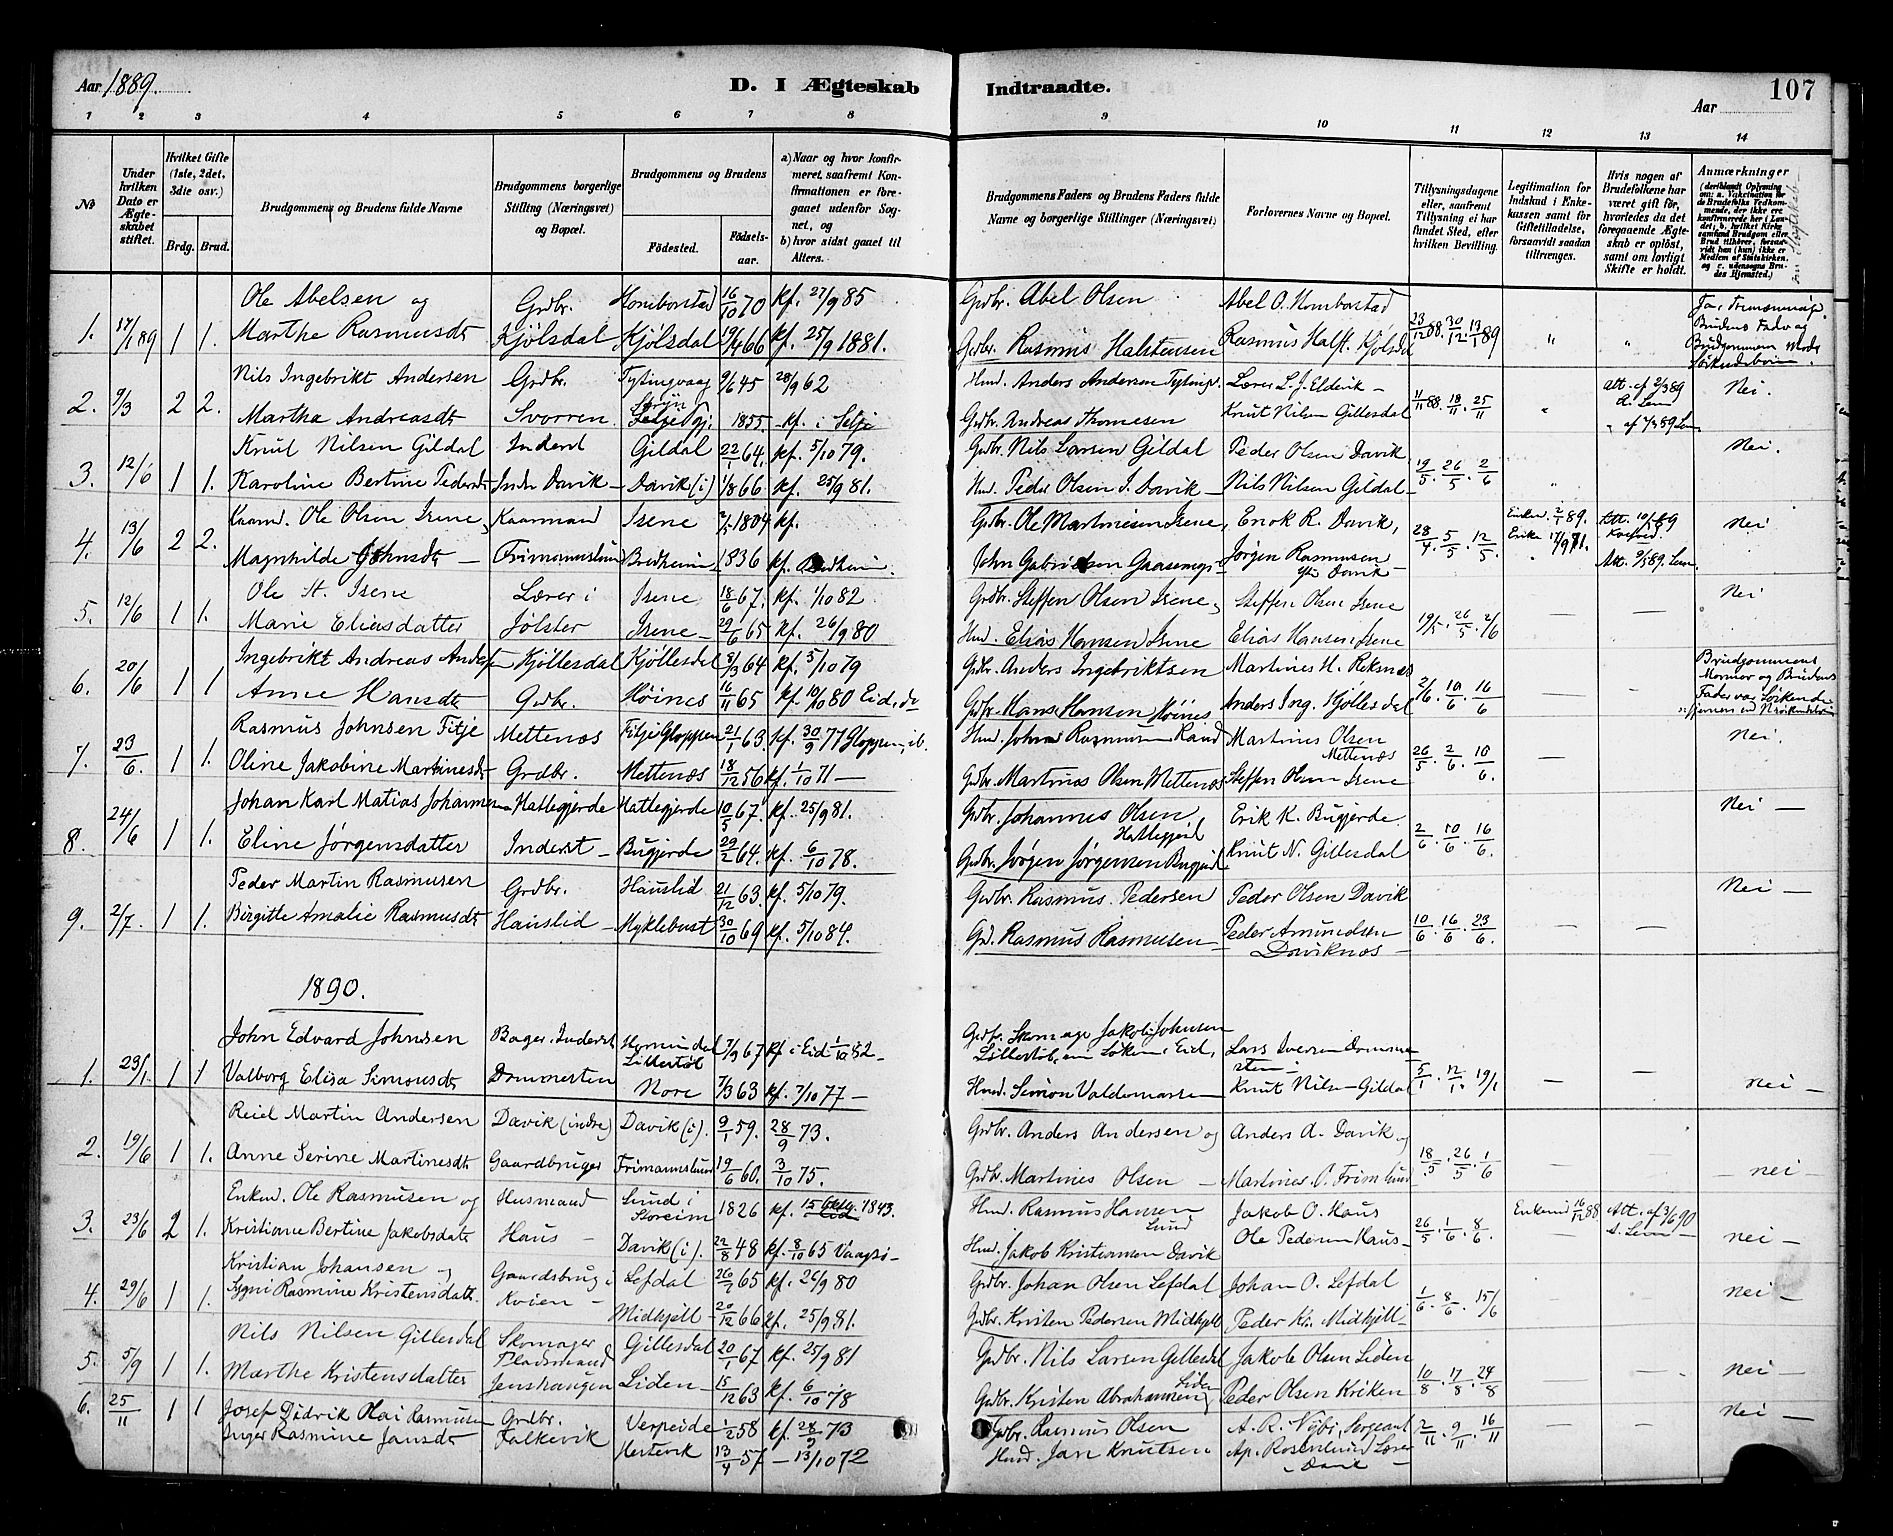 Aar 1889.
D. I Ægteskab Indtraadte.
Aar
107
1 2 3 4 5 6 7 8 9 10 11 12 13 14
No
Under hvilken Dato er Ægteskabet stiftet.
Hvilket Gifte (1ste, 2det, 3die osv.)
Brdg. Brud.
Brudgommens og Brudens fulde Navne
Brudgommens borgerlige Stilling (Næringsvei) og Bopæl.
Brudgommens og Brudens
Fødested. Fødselsaar.
a) Naar og hvor konfirmeret, saafremt Konfirmationen er foregaaet udenfor Sognet, og
b) hvor sidst gaaet til Alters.
Brudgommens Faders og Brudens Faders fulde Navne og borgerlige Stillinger (Næringsvei)
Forlovernes Navne og Bopæl.
Tillysningsdagene eller, saafremt Tillysning ei har fundet Sted, efter hvilken Bevilling.
Legitimation for Indskud i Enkekassen samt for Giftetilladelse, forsaavidt saadan tiltrænges.
Hvis nogen af Brudefolkene har været gift før, hvorledes da det foregaaende Ægteskab er opløst, samt om lovligt Skifte er holdt.
Anmærkninger
Ole Abelsen og Grdbr. 16/10 70 kf. 27/9 85 Grdbr. Abel Olsen
1. 17/1 89 1 1. Marthe Rasmusdt Kjölsdal Kjölsdal 19/4 66 kf. 25/9 1881. Grdbr. Rasmus Halstensen 23/12 88. 30/12. 13/1 89 " "
Brudens Fader og
Nils Ingebrikt Andersen Grdbr. Tytingvaag 9/6 45 28/9 62 Hmd. Anders Andersen Lærer
2. 9/3 2 2. Martha Andreasdt Svorren Stryn 1855 kf. i Selje Grdbr. Andreas Thomesen Knut Nilsen Gillesdal 11/11 88. 18/11. 25/11 Att. af 2/3 89 Nei.
Knut Nilsen Gildal Inderst Gildal 22/1 64. kf. 5/10 79. Grdbr. Nils Larsen Gildal Peder Olsen Davik
3. 12/6 1 1. Karoline Bertine Pedersdt Inds. Davik Davik (i) 1/8 66 kf. 25/9 81. Hmd. Peder Olsen I. Davik Nils Nilsen Gildal 19/5. 26/5. 2/6 Nei.
Ole Olsen Isene Kaarmand Isene 1804 kf. Grdbr. Ole Martinesen Isene, Enok R. Davik,
4. 13/6 2 2. Magnhilde Johnsdt Frimannslund Bredheim 1836 kf. Jörgen Rasmusen Davik 28/4. 5/5. 12/5 Nei
Ole St. Isene Lærer i Isene 18/6 67. kf. 1/10 82 Grdbr. Steffen Olsen Isene, Steffen Olsen Isene
5. 12/6 1 1. Marie Eliasdatter Jölster Isene 29/6 65 kf. 26/9 80 Hmd. Elias Hansen Isene Elias Hansen Isene 19/5. 26/5. 2/6 — — Nei
Ingebrikt Andreas Kjöllesdal Kjöllesdal 8/3 64 kf. 5/10 79 Grdbr. Anders Ingebriktsen Martines H. Reksnæs
6. 20/6 1 1 Anne Hansdt Grdbr. Höines 16/11 65 kf. 10/10 80 Eid, do Grdbr. Hans Hansen Höines Anders Ing. Kjöllesdal 2/6. 10/6. 16/6 — —
Brudgommens Mormor og Brudens Fader var Söskende
Rasmus Johnsen Fitje Mettenæs Fitje Gloppen 21/1 63. kf. 30/9 77 Gloppen, ib. Hmd. John Rasmusen Rand Martines Olsen Mettenæs
7. 23/6. 1 1. Oline Jakobine Martinesdt Grdbr. Mettenæs 18/12 56 kf. 1/10 71 — Grdbr. Martines Olsen Mettenæs Steffen Olsen Isene 26/5. 2/6. 10/6. — Nei.
Johan Karl Matias Johannesen Hattegjerde Hattegjerde 10/5 67. kf. 25/9 81. Grdbr. Johannes Olsen Hattegjerd Erik K. Bugjerde
8. 24/6 1 1. Eline Jörgensdatter Inderst Bugjerde 29/2 64. kf. 6/10 78. Grdbr. Jörgen Jörgensen Bugjerd Knut N. Gillesdal 2/6. 10/6. 16/6. Nei —
Peder Martin Rasmusen Grdbr. Hauslid 21/12 63. kf. 5/10 79. Grdbr. Rasmus Pedersen Peder Olsen Davik
9. 2/7. 1 1. Birgitte Amalie Rasmusdt Hauslid Myklebust 30/10 69 kf. 5/10 84. Grd. Rasmus Rasmusen Peder Amundsen Daviknæs 10/6. 16/6. 23/6. — — Nei —
1890.
John Edvard Johnsen Bager, Inderst 7/9 67 kf. i Eid 1/10 82 Jakob Johnsen
1. 23/1. 1 1 Valborg Elisa Simonsdt Dommesten Nore 7/3 63 kf. 7/10 77 — Hmd. Simon Valdemarsen Knut Nilsen Gildal 5/1. 12/1. 19/1 — — nei —
Reiel Martin Andersen Davik (indre) Davik (i). 9/1 59. 28/9 73. Grdbr. Anders Andersen og Anders A. Davik og
2. 19/6 1 1. Anne Serine Martinesdt Gaardbruger Frimannslund 19/6 60. 3/10 75. Grdbr. Martines Olsen Martines O. Frimlund 18/5. 26/5. 1/6 — — nei —
Enkmd. Ole Rasmusen og Husmand Lund i Storeim 1826 kf. 1843. Hmd. Rasmus Hansen Lund Jakob O. Haus
3. 23/6 2 1. Kristiane Bertine Jakobsdatt. Haus — Davik (i). 22/8 48 kf. 8/10 65 Vaagsö — Hmd. Jakob Kristiansen Davik Ole Pedersen Haus 26/5. 1/6. 8/6. Enkemd 16/12 88 Att. af 3/6 90 nei —
Kristian Johansen og Gaardsbrug. i Lefdal 26/2 65 kf. 26/9 80 Grdbr. Johan Olsen Lefdal Johan O. Lefdal
4. 29/6 1 1. Rasmine Kristensdatt. Kvien — Midhjell 20/12 66 kf. 25/9 81. Grdbr. Kristen Pedersen Midhjell Peder Kr. Midhjell 1/6. 8/6. 15/6 nei —
Nils Nilsen Gillesdal Skomager Gillesdal 20/1 67 kf. 25/9 81 Grdbr. Nils Larsen Gillesdal Jakob Olsen Liden
5. 5/9 1 1. Marthe Kristensdatter Pladsmand Jenshaugen Liden 15/12 63 kf. 6/10 78 Grdbr. Kristen Abrahamsen Liden Peder Olsen Kriken 10/8. 17/8. 24/8 — — nei —
6. 25/11 1 1 Josef Didrik Olai Rasmusen Grdbr. Verpeide 1/2 58 kf. 28/9 73 Grdbr. Rasmus Olsen A. R. Nybö, Sergeant 2/11. 9/11. 16/11 — — nei —
Inger Rasmine Jansdt Falkevik Hestevik 13/4 57 — 13/10 72 Hmd. Jan Knutsen Ap. Rosenlund Lærer